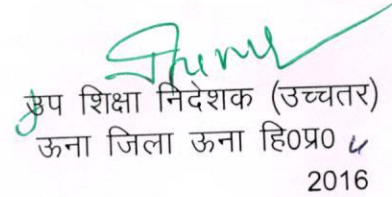 उप शिक्षा निदेशक (उच्चतर)
ऊना जिला ऊना हि0प्र0
2016